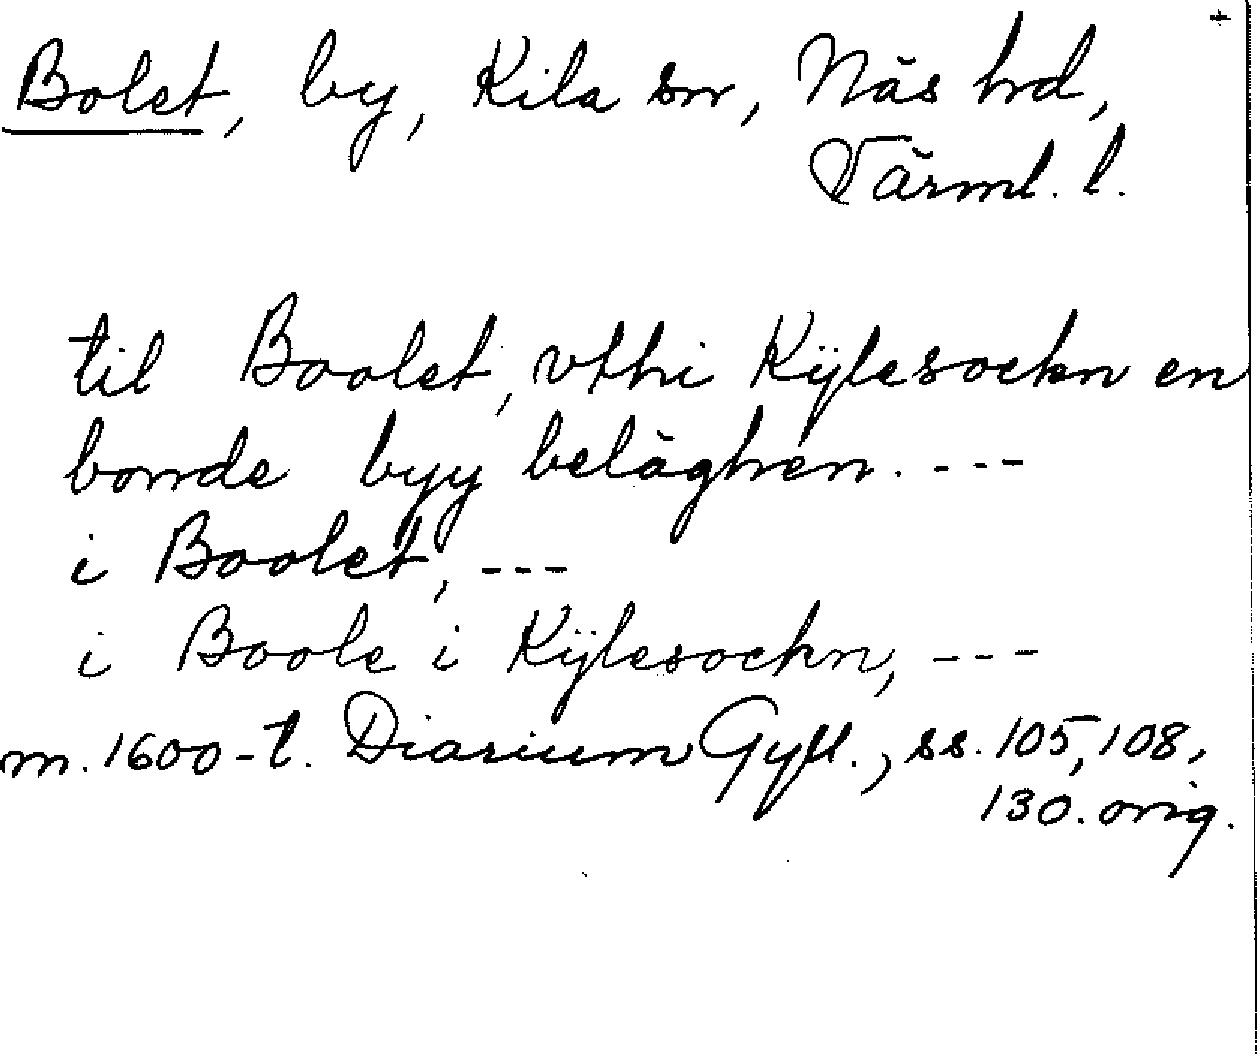 +
Bolet, by, Kila sn, Näs hd,
Värml. l.
til Boolet, vthi Kÿlesockn en
bonde byy beläghen. ---
i Boolet, ---
i Boole i Kÿlesockn, ---
m. 1600-t. Diarium Gyll., ss. 105, 108,
130. orig.